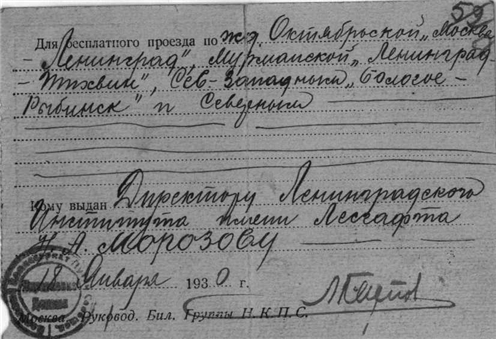 59
Для бесплатного проезда по ж.д. Октябрьской „Москва
- Ленинград", Мурманской „Ленинград
- Тихвин", Сев-Западным „Бологое -
Рыбинск" и Северным
Кому выдан Директору Ленинградского
Института имени Лесгафта
Н. А. МОРОЗОВУ
18 Января 1930 г.
Москва. Руковод. Бил. Группы Н.К.П.С.